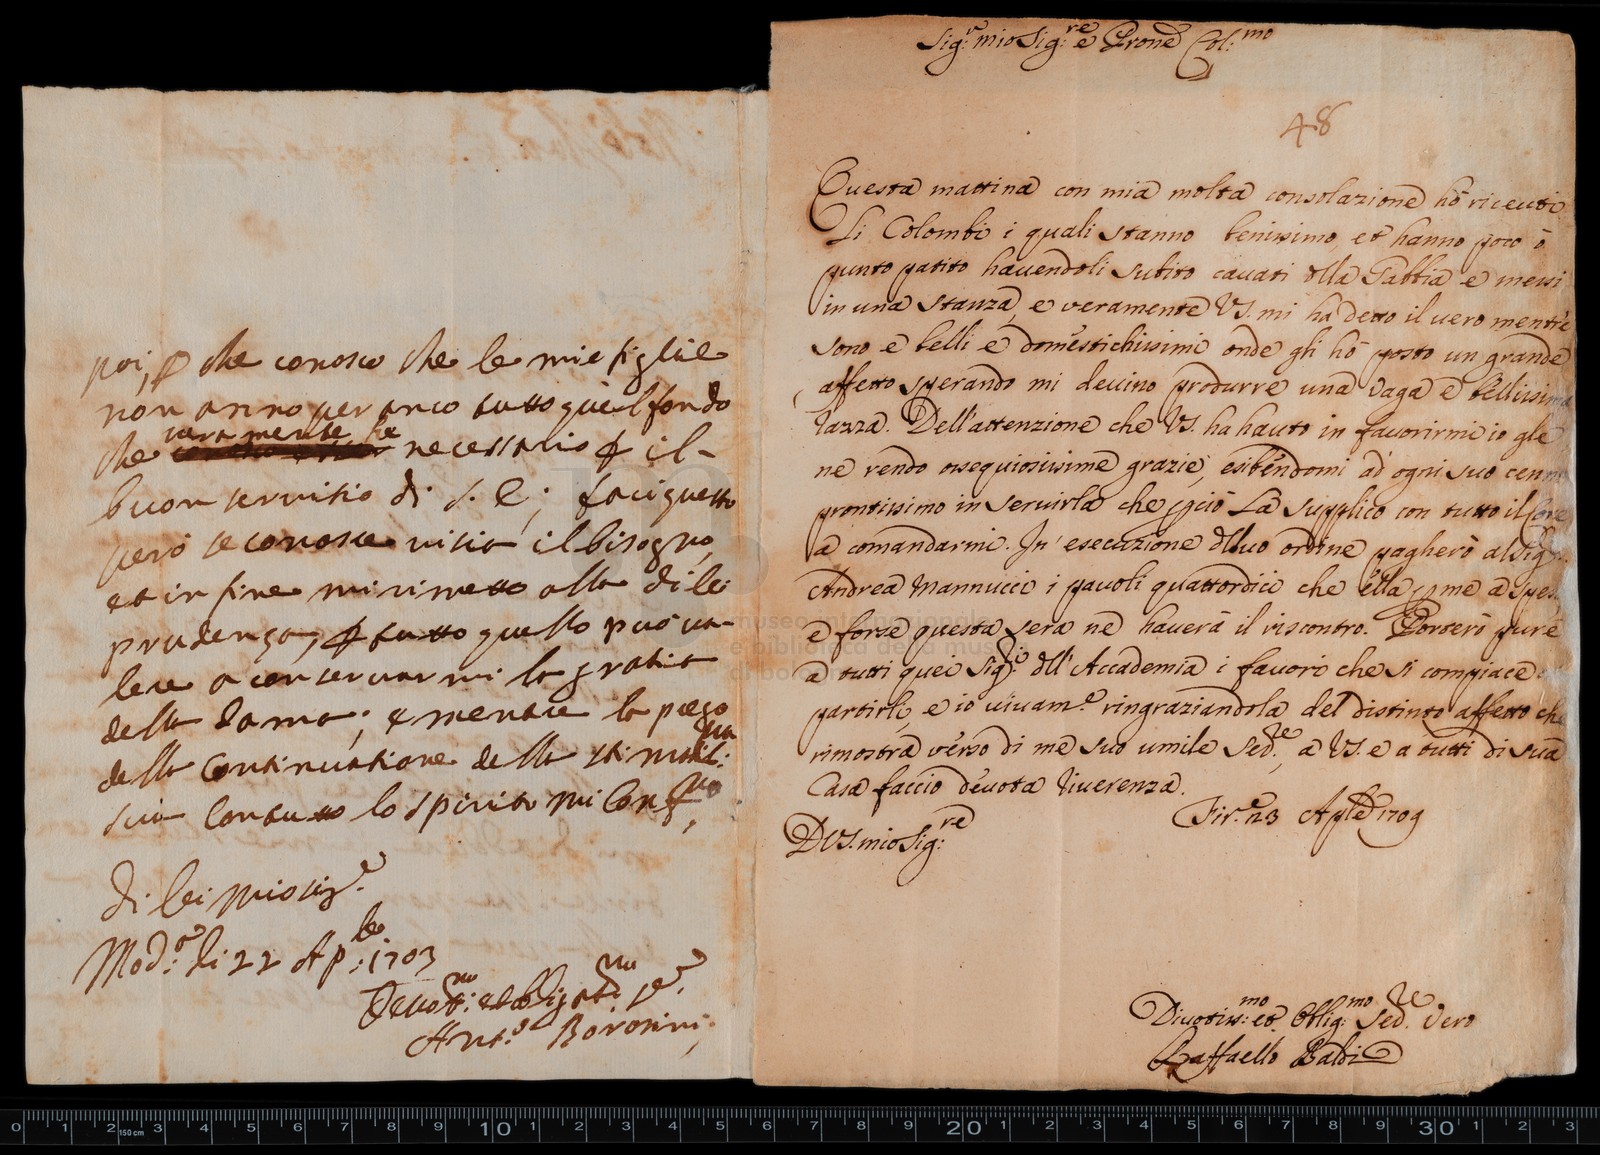 poi, p che conosco che le mie figlie
non anno per anco tutto quel fondo
che veramente è necessario p il
buon servitio di S. E.; faci questo
però se conosce visia il bisogno,
et in fine mi rimetto alla di lei
prudenza, p tutto quello può va-
lere a conservarmi la gratia
della Dama; e mentre la prego
della continuatione della stimatiss:ma
sua con tutto lo spirito mi confmo
di lei mio sig.re
Mod.a li 22 Ap:le 1703
Devott:mo et obligat:mo se.re
Ant.o Borosini;
Sig:r mio Sig:re e Prone Col:mo
48
Questa mattina con mia molta consolazione hò riceuti
Li Colombi i quali stanno benissimo, et hanno poco ò
punto patito hauendoli subito cauati dlla Gabbia e messi
in una stanza, e veramente VS. mi ha detto il uero mentre
sono e belli e domestichissimi onde gli hò posto un grande
affetto sperando mi deuino produrre una vaga e bellissima
razza. Dell'attenzione che VS. ha hauto in fauorirmi io gle
ne rendo ossequiosissime grazie, esibendomi ad ogni suo cenno
prontissimo in seruirla che pciò La supplico con tutto il core
a comandarmi. In' esecuzione dl suo ordine pagherò al Sig.r
Andrea Mannucci i pauoli quattordici che ella p me à spesi
e forse questa sera ne hauerà il riscontro. Porterò pure
a tutti quei Sig:ri dll'Accademia i fauori che si compiace
partirli, e io uiuam.e ringraziandola del distinto affetto che
rimostra verso di me suo umile Sed.re, a VS. e a tutti di sua
Casa faccio deuota riuerenza.
Fir.e 23 Aple 1709
D VS. mio Sig:re
Diuotiss:mo et Oblig:mo Sed.re Vero
Raffaello Baldi